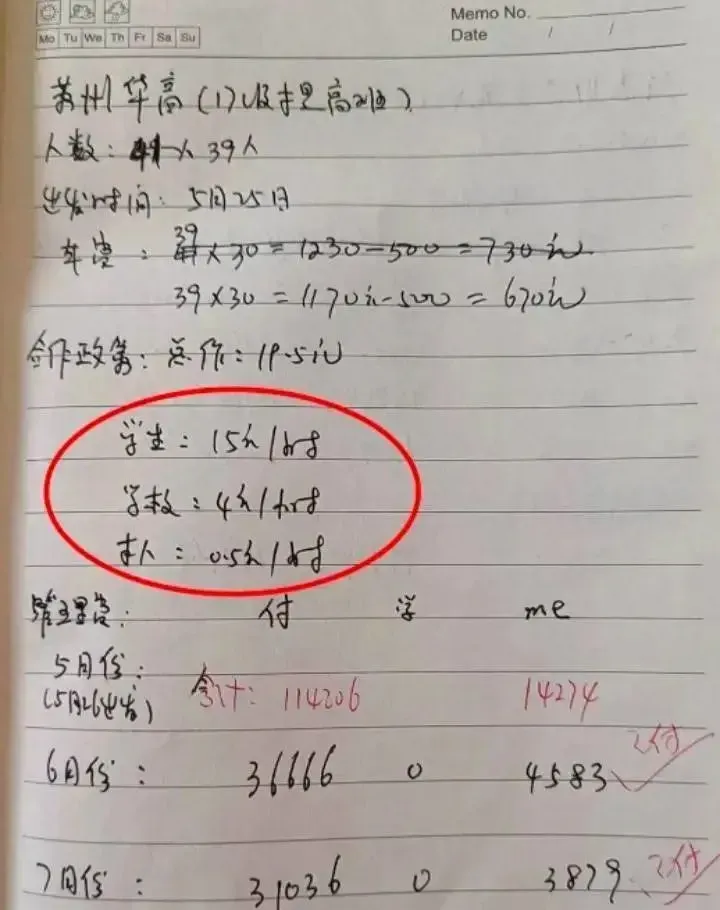 Memo No.
Mo Tu We Th Fr Sa Su
Date / /
苏州华高(1)(级才里高班)
人数: 41人 39人
出发时间: 5月25日
39
车费: 41×30=1230-500=730元
39×30=1170元-500=670元
合作政策: 总价: 19.5元
学生: 15元/时
学校: 4元/时
本人: 0.5元/时
管理费: 付 学 me
5月份:
(5月26出发) 合计: 114206 14274
6月份: 36666 0 4583 已付
7月份: 31036 0 3879 已付